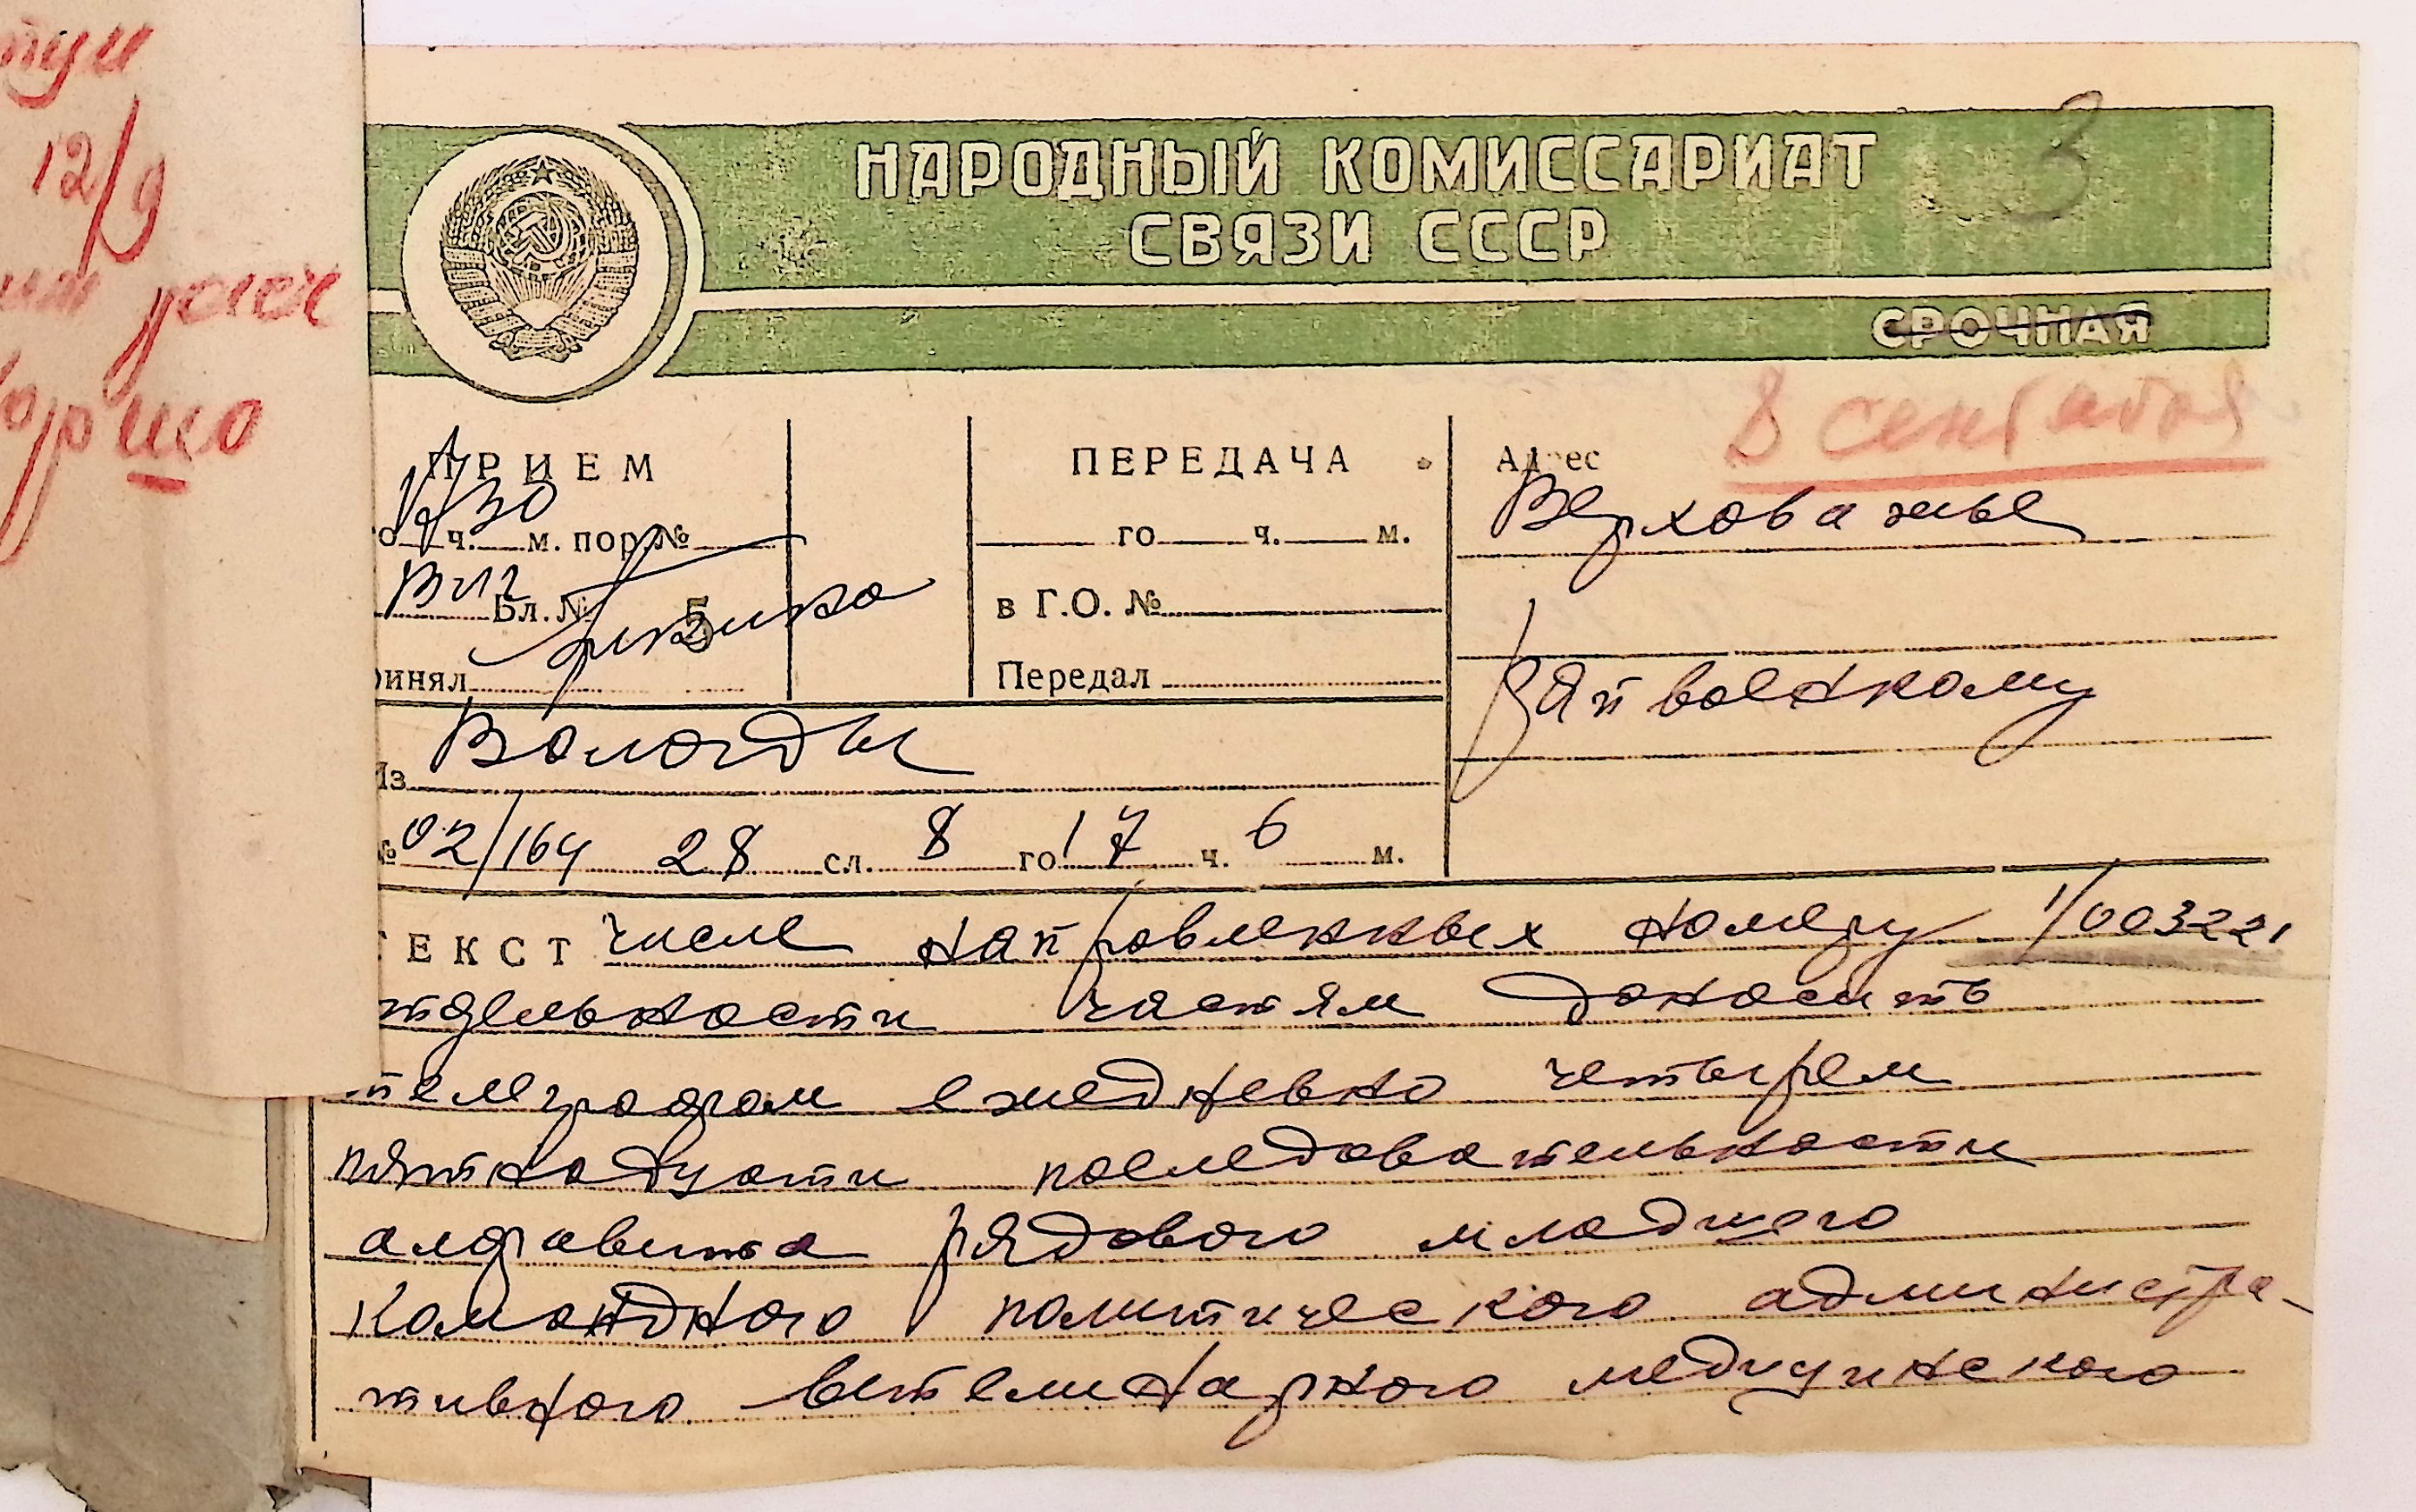 12/9
НАРОДНЫЙ КОМИССАРИАТ
СВЯЗИ СССР
3
СРОЧНАЯ
8 сентября
ПРИЕМ
ПЕРЕДАЧА
Адрес
30
ч. м. пор. №
го ч. м.
Верховажье
Бл. № 5
в Г.О. №
инял
Передал
Райвоенкому
Из Вологды
№ 02/164 28 сл. 8 го 17 ч. 6 м.
ЕКСТ числе направленных номеру 1/003221
тдельности частям доносить
телеграфом ежедневно четырем
пятнадцати последовательности
алфавита рядового младшего
командного политического администра-
тивного ветеминарного медицинского